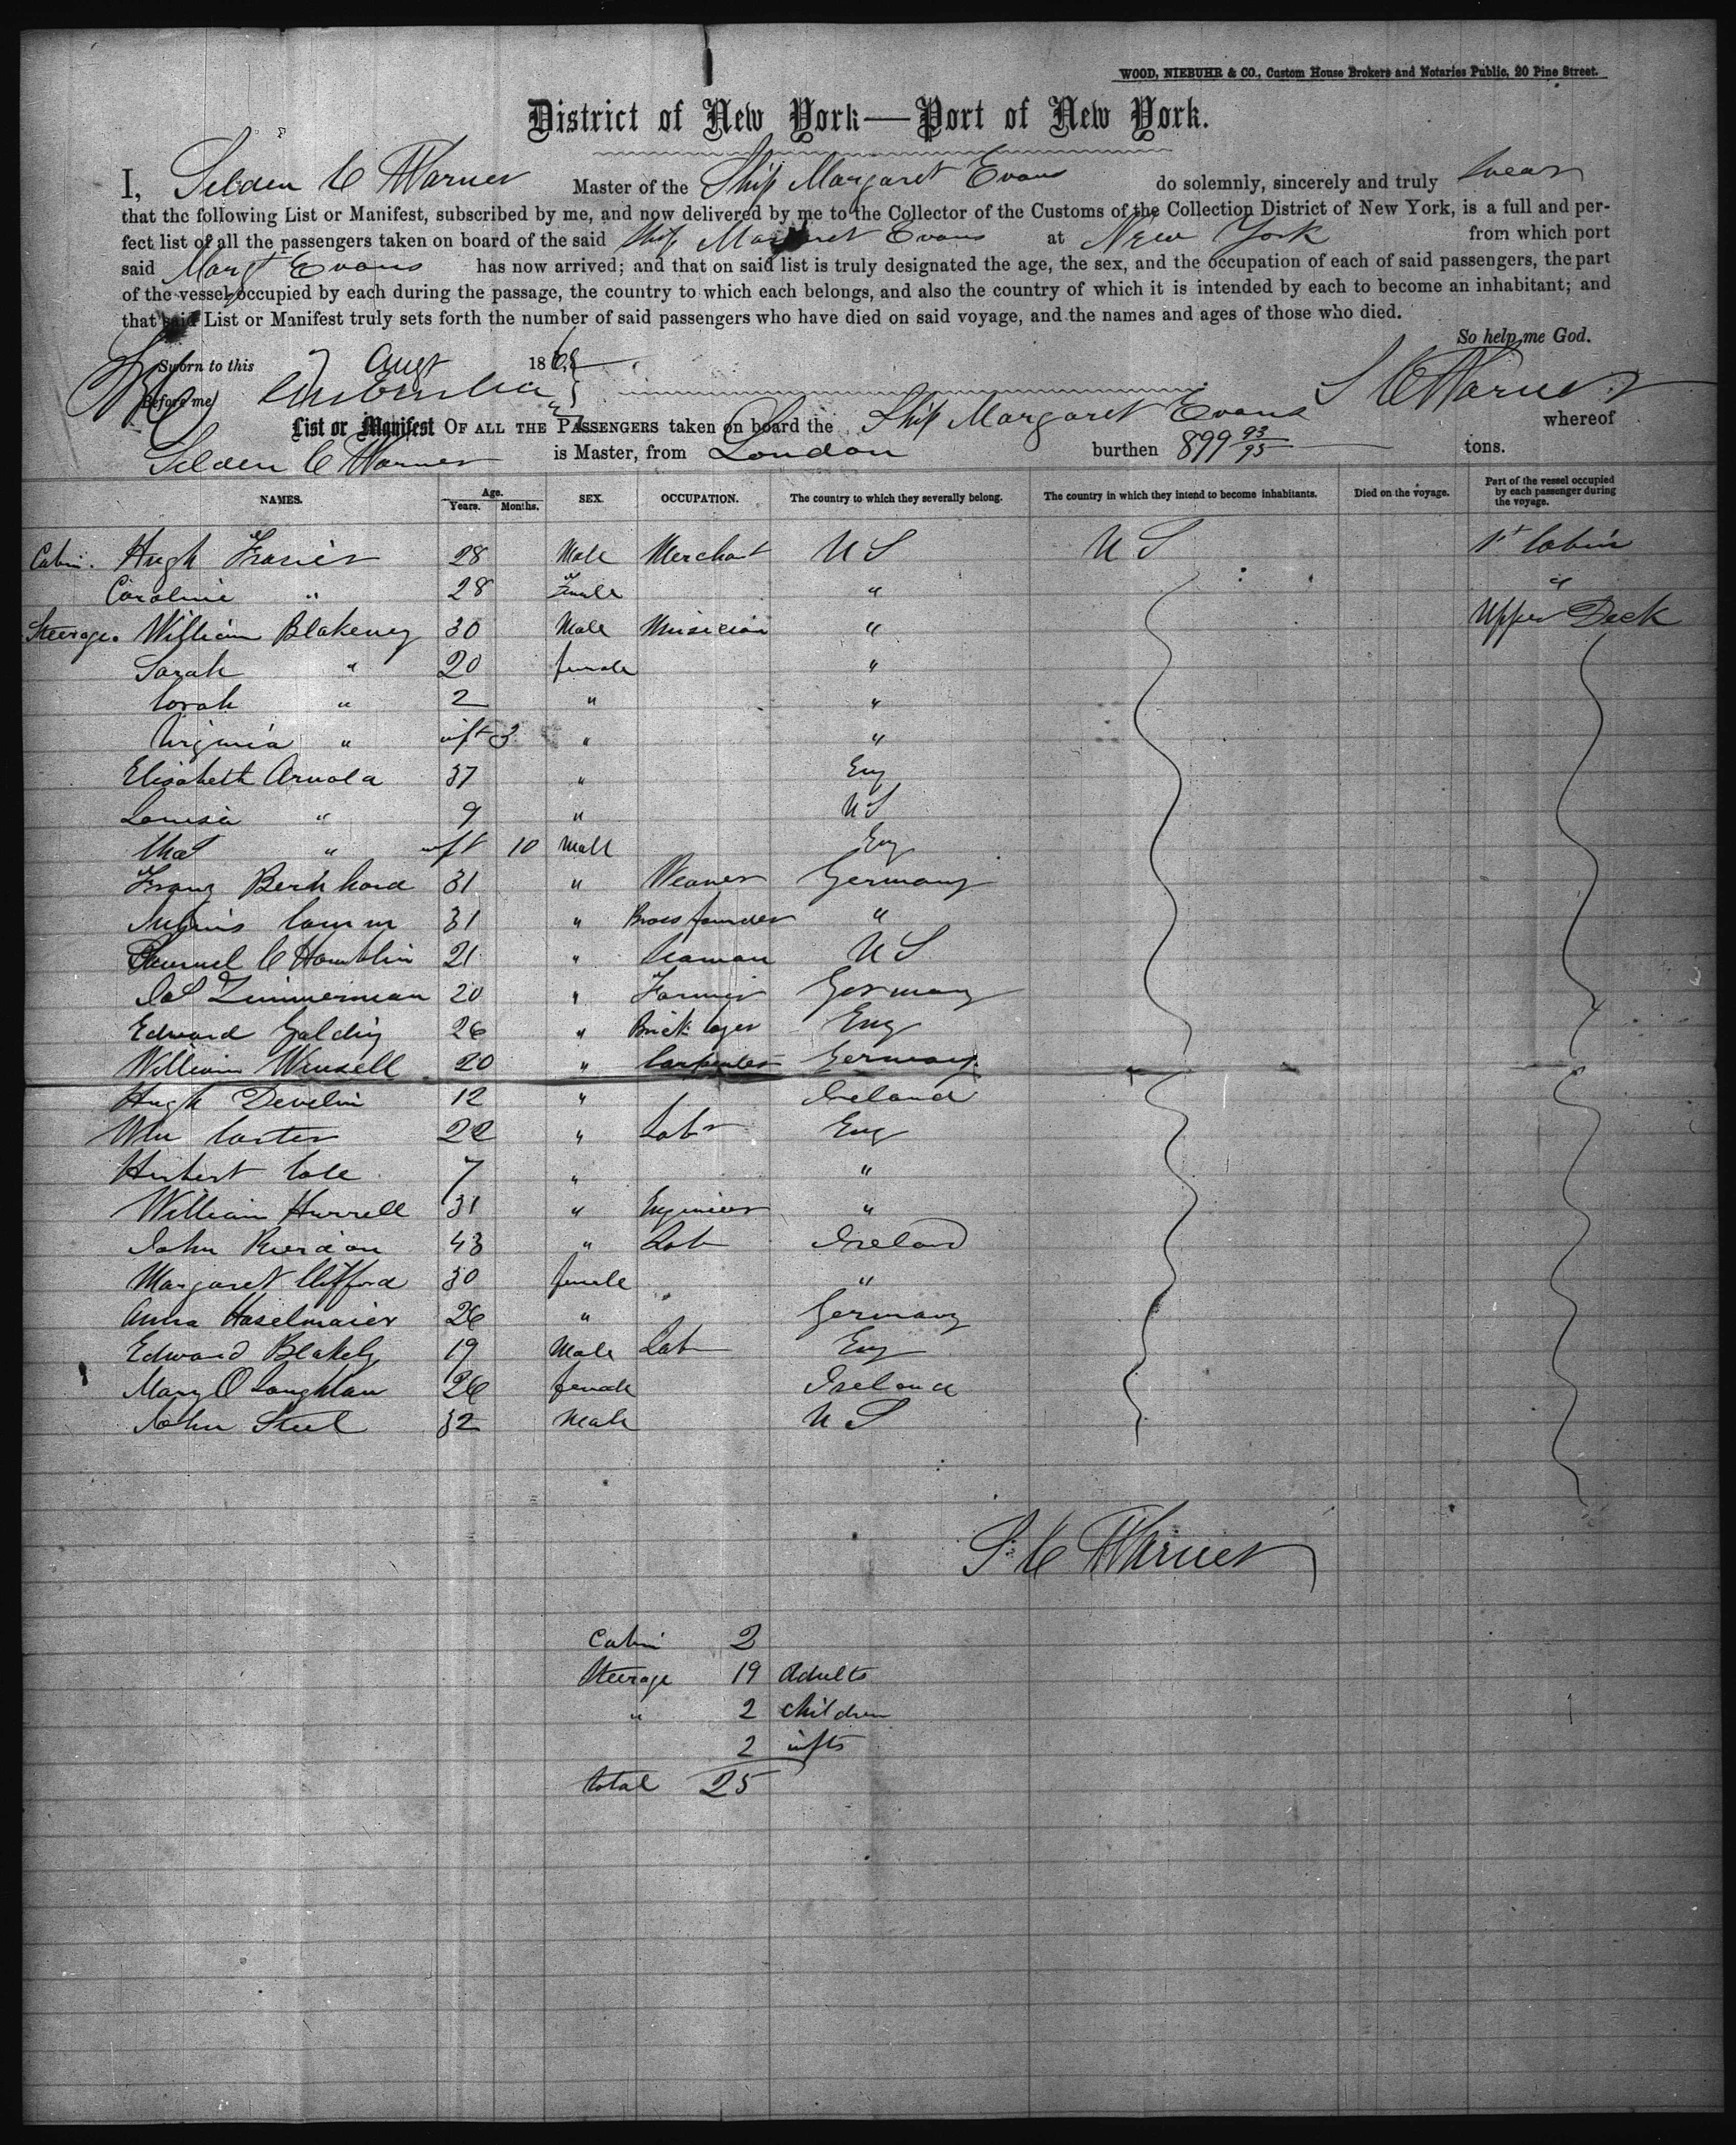 WOOD, NIEBUHR & CO., Custom House Brokers and Notaries Public, 20 Pine Street.
District of New York—Port of New York.
I, Selden C Warner Master of the Ship Margaret Evans do solemnly, sincerely and truly swear
that the following List or Manifest, subscribed by me, and now delivered by me to the Collector of the Customs of the Collection District of New York, is a full and per-
fect list of all the passengers taken on board of the said Ship Margaret Evans at New York from which port
said Margt Evans has now arrived; and that on said list is truly designated the age, the sex, and the occupation of each of said passengers, the part
of the vessel occupied by each during the passage, the country to which each belongs, and also the country of which it is intended by each to become an inhabitant; and
that said List or Manifest truly sets forth the number of said passengers who have died on said voyage, and the names and ages of those who died.
So help me God.
Sworn to this 7 Augt 186
Before me S C Warner
List or Manifest OF ALL THE PASSENGERS taken on board the Ship Margaret Evans whereof
Selden C Warner is Master, from London burthen 899 93/95 tons.
NAMES. Age. Years. Months. SEX. OCCUPATION. The country to which they severally belong. The country in which they intend to become inhabitants. Died on the voyage. Part of the vessel occupied by each passenger during the voyage.
Cabin. Hugh Frasier 28 Male Merchant U S U S 1st Cabin
Caroline " 28 Female " "
Steerage. William Blakeney 30 Male Musician " Upper Deck
Sarah " 20 female "
Corah " 2 " "
Virginia " inft 3 " "
Elisabeth Arnold 37 " Eng
Louisa " 9 " U S
Chas " inft 10 Male Eng
Franz Bernhard 31 " Weaver Germany
Julius Camm 31 " Brass founder "
Samuel C Hamblin 21 " Seaman U S
Jas Zimmerman 20 " Farmer Germany
Edward Golding 26 " Brick layer Eng
William Wensell 20 " Carpenter Germany
Hugh Develin 12 " Ireland
Wm Carter 22 " Labr Eng
Herbert Cole 7 " "
William Hurrell 31 " Engineer "
John Rierdon 43 " Lab Ireland
Margaret Clifford 30 female "
Anna Haselmaier 26 " Germany
Edward Blakely 19 Male Lab Eng
Mary O Loughlan 26 female Ireland
John Steel 32 Male U S
S. C Warner
Cabin 2
Steerage 19 Adults
" 2 Children
2 infts
total 25